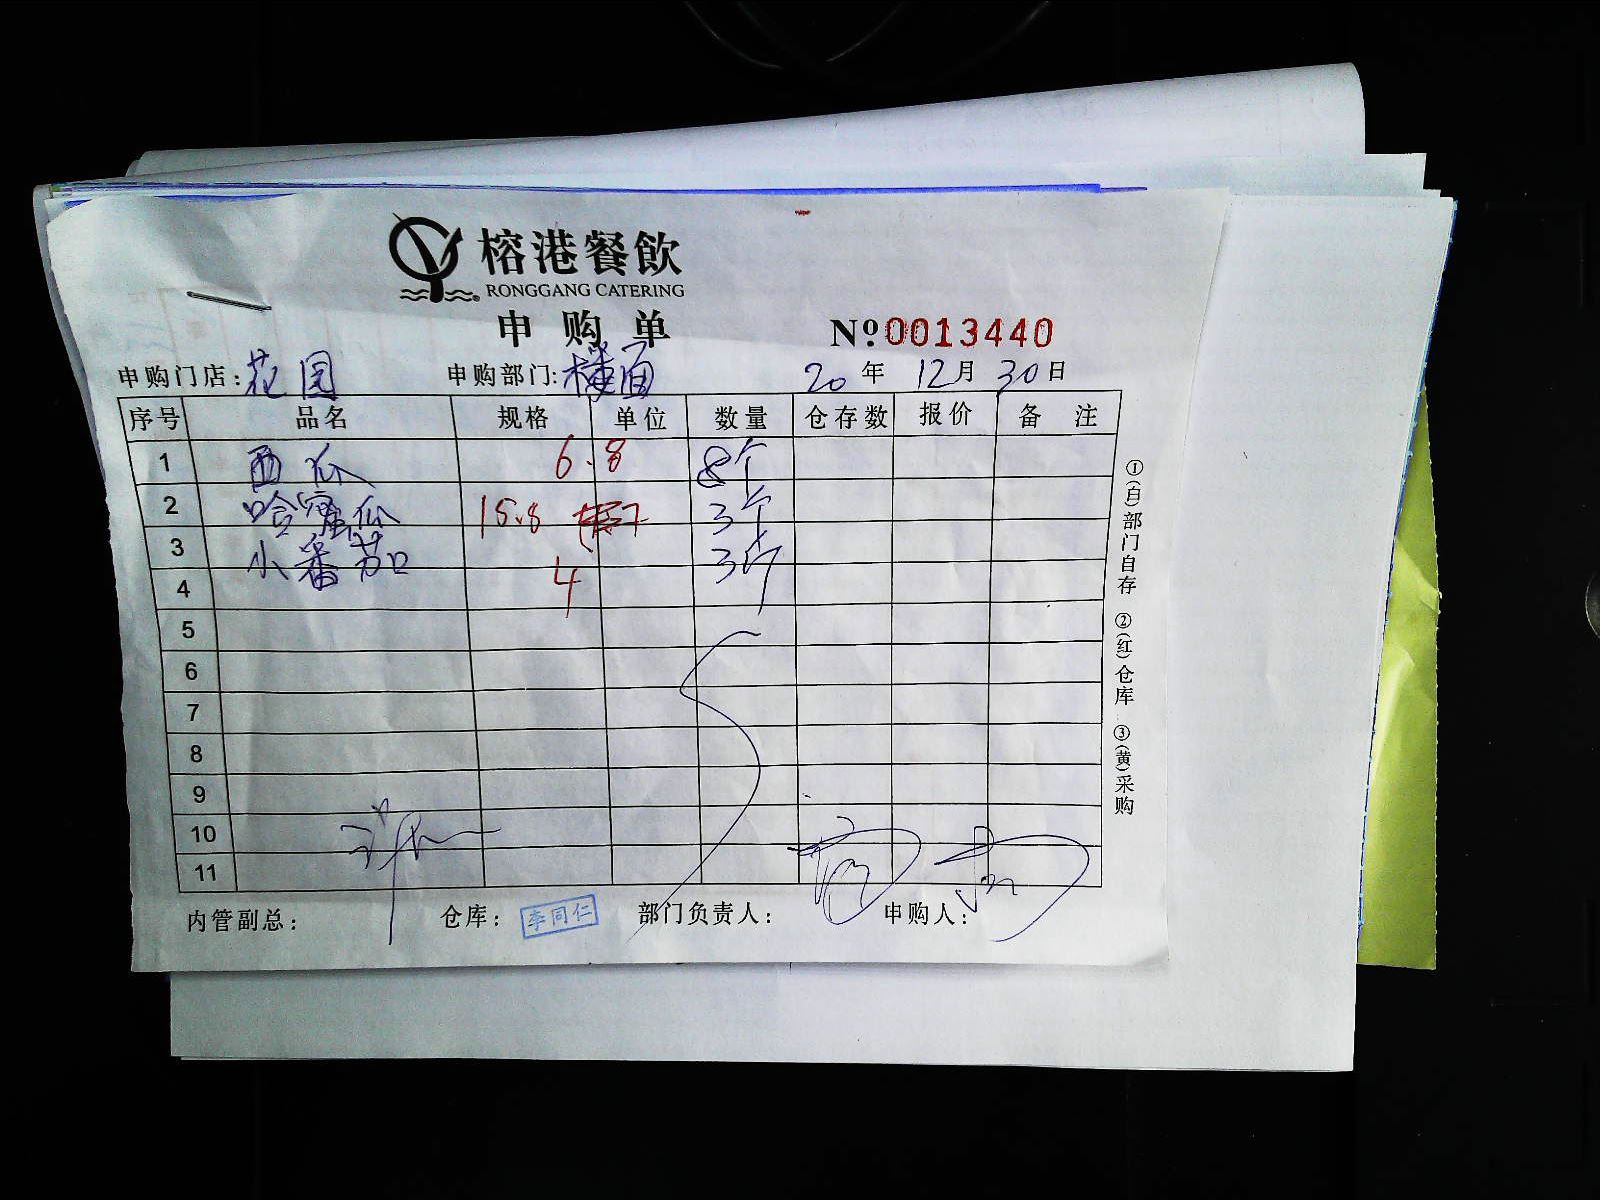 榕港餐飲
RONGGANG CATERING
申购单
Nº 0013440
申购门店:花园 申购部门:楼面 20年12月30日
序号 品名 规格 单位 数量 仓存数 报价 备注
1 西瓜 6.8 8个
2 哈密瓜 15.8 3个
3 小番茄 4 3斤
4
5
6
7
8
9
10
11
内管副总: 仓库: 李同仁 部门负责人: 申购人:
①(白)部门自存 ②(红)仓库 ③(黄)采购